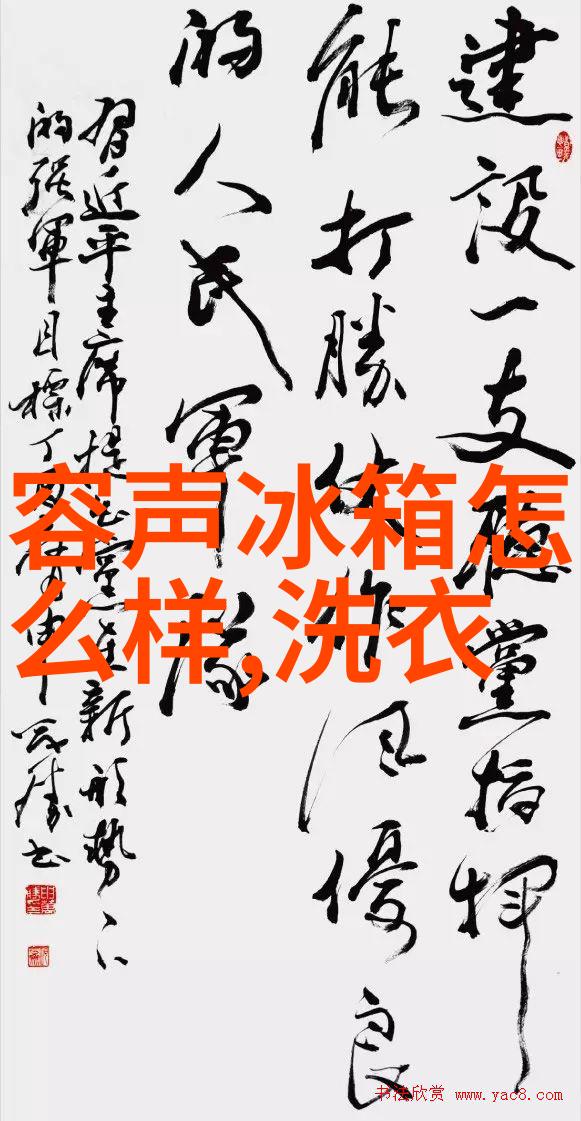 建设一支听党指挥
能打勝仗作风優良
的人民軍隊
習近平主席提出黨在新形势下
的强軍目標
容声冰箱怎
么样,洗衣
书法欣赏 www.yac8.com